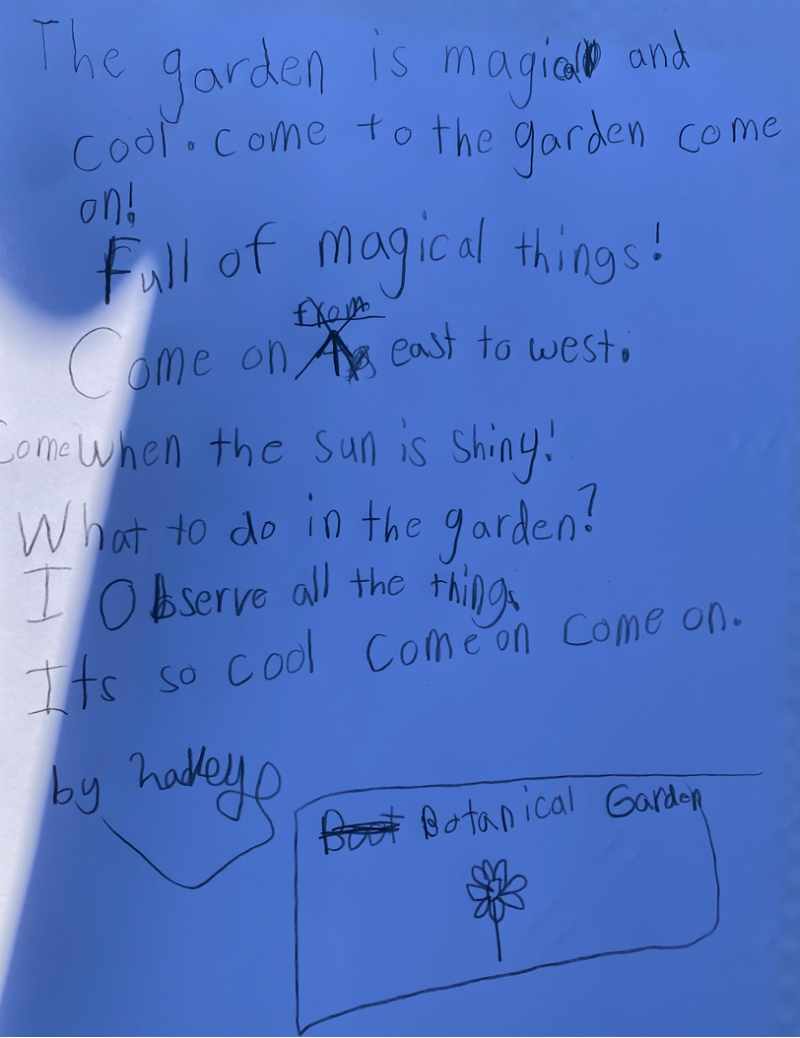 The garden is magical and
cool. come to the garden come
on!
Full of magical things!
Come on from east to west.
Come when the sun is shiny!
What to do in the garden?
I Observe all the things
Its so cool come on come on.
by hadley
Botanical Garden